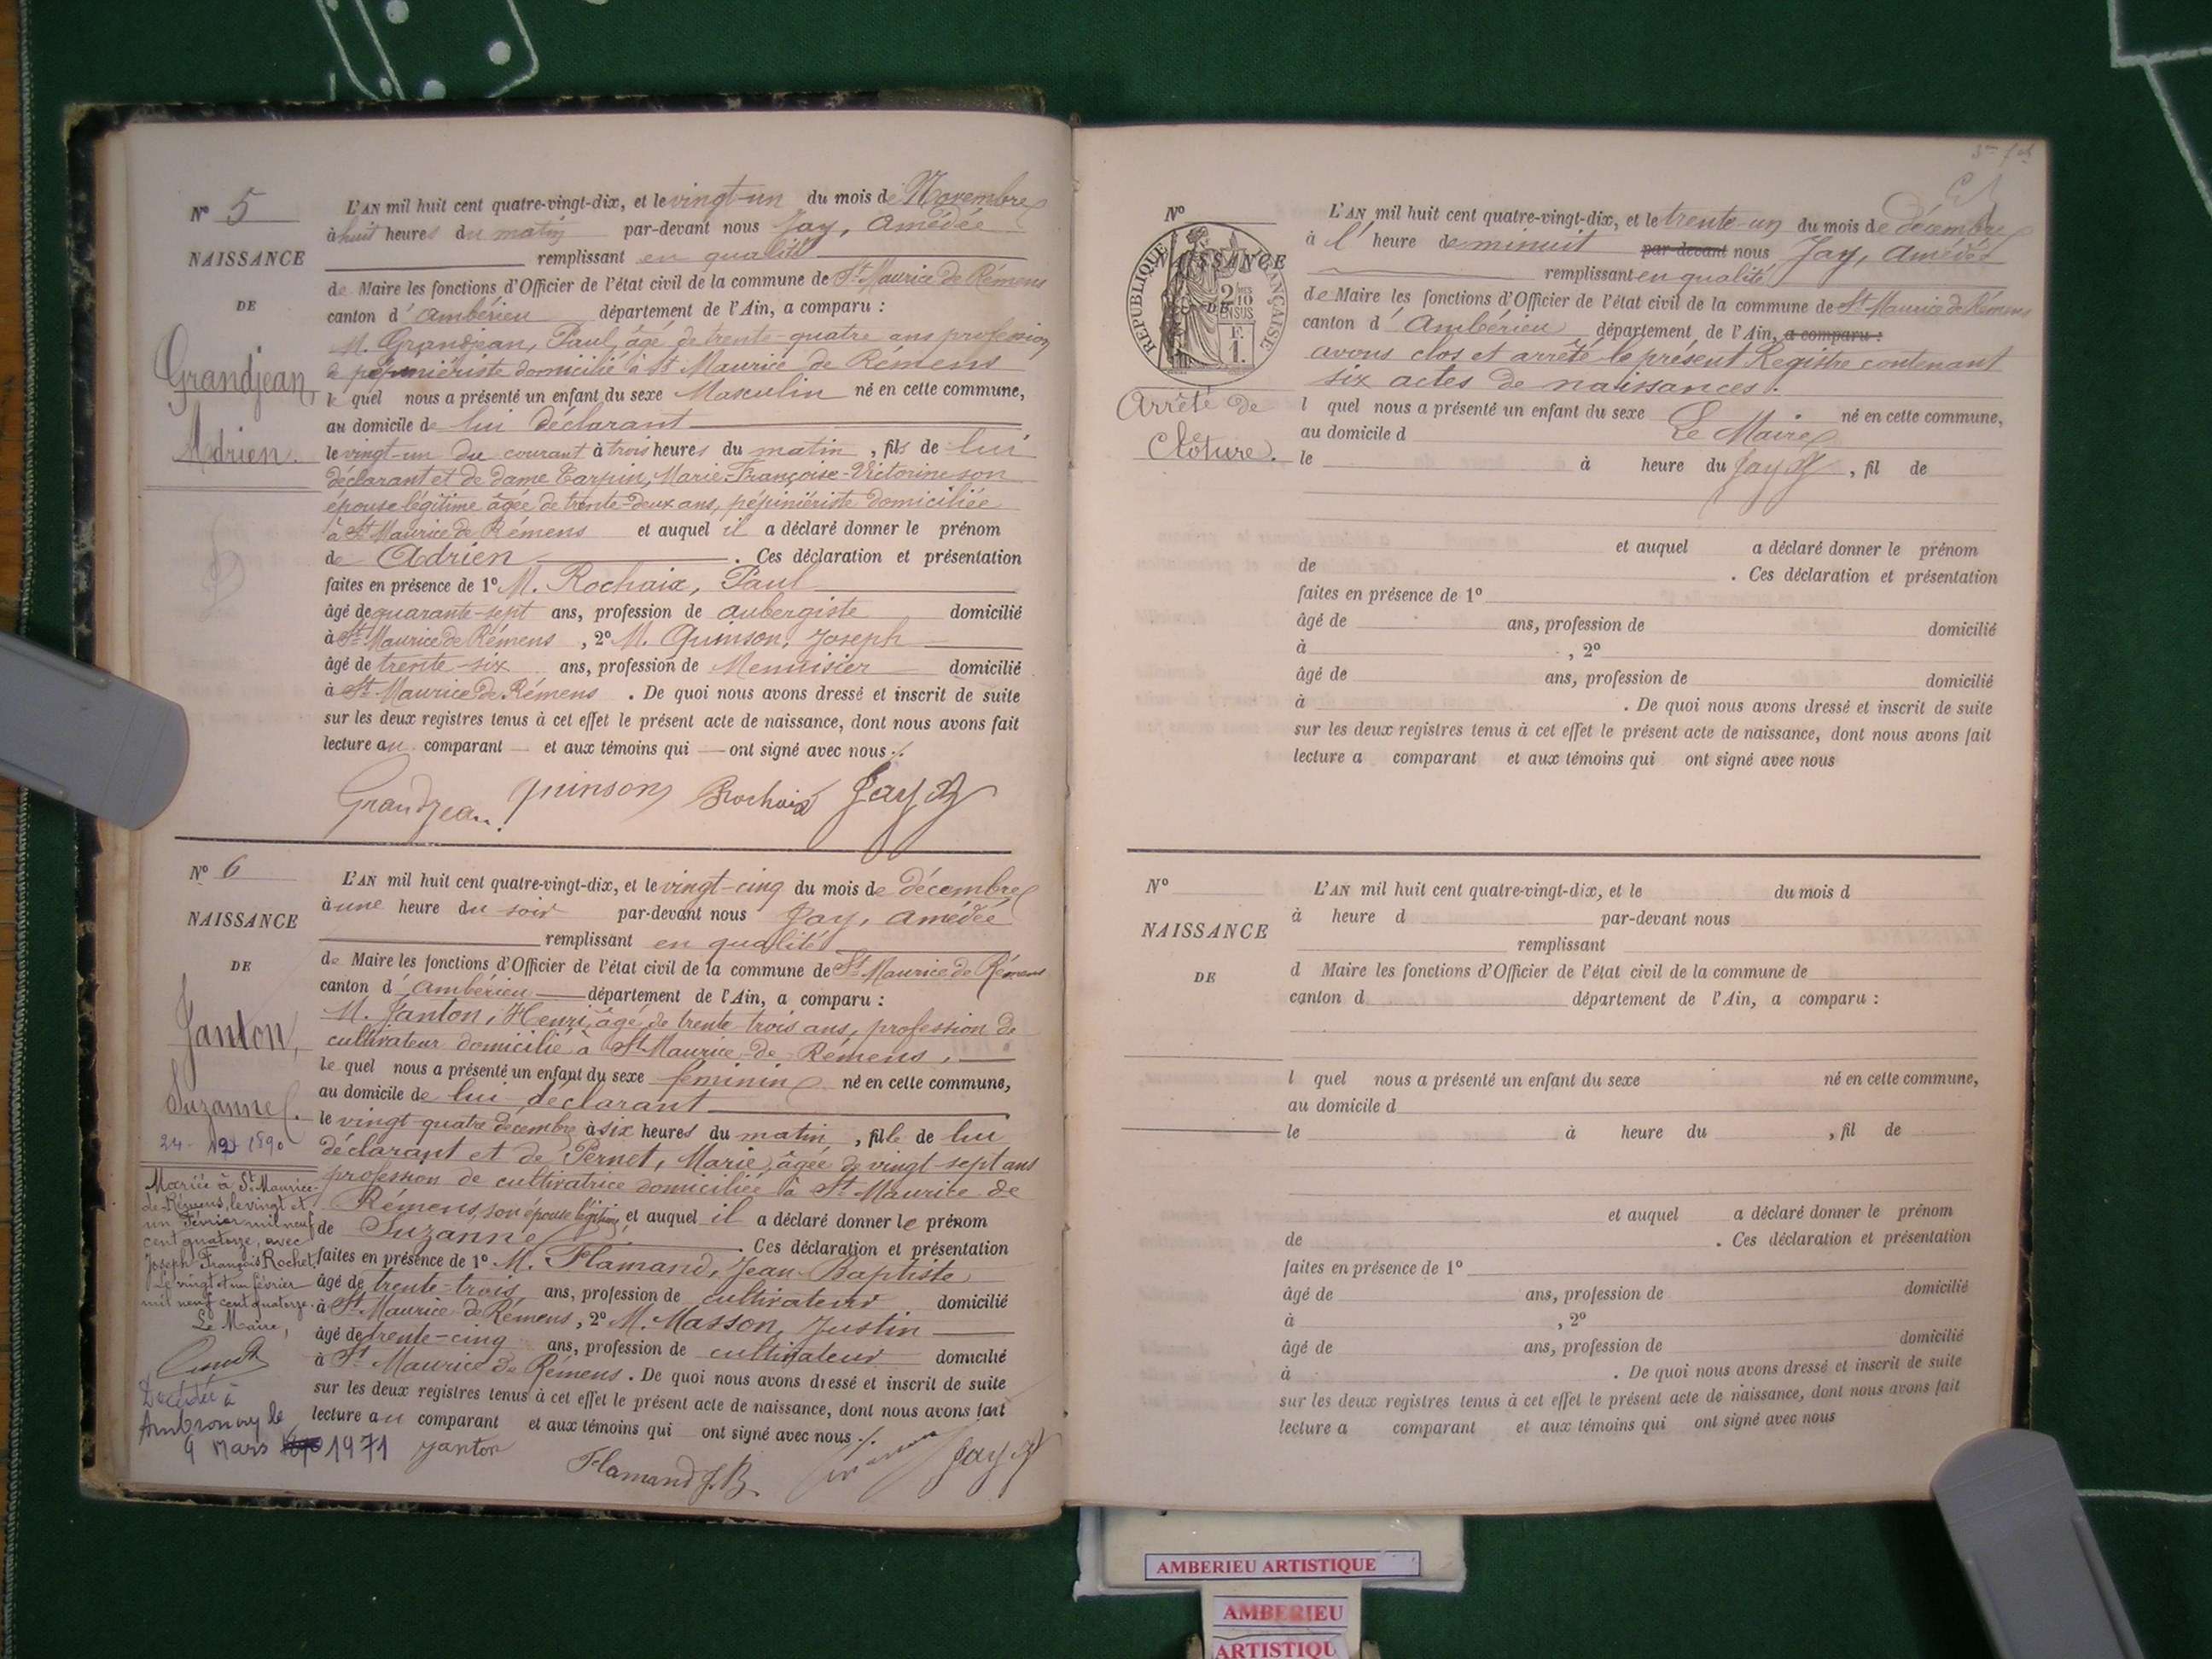 N° 5
NAISSANCE
DE
Grandjean,
Adrien.
L'AN mil huit cent quatre-vingt-dix, et le vingt-un du mois de Novembre
à huit heures du matin par-devant nous Jay, Amédée
remplissant en qualité
de Maire les fonctions d'Officier de l'état civil de la commune de St Maurice de Rémens
canton d'Ambérieu département de l'Ain, a comparu :
M. Grandjean, Paul, âgé de trente-quatre ans profession
de pépiniériste domicilié à St Maurice de Rémens
le quel nous a présenté un enfant du sexe Masculin né en cette commune,
au domicile de lui déclarant
le vingt-un du courant à trois heures du matin, fils de lui
déclarant et de dame Tarpin, Marie-Françoise-Victorine son
épouse légitime âgée de trente-deux ans, pépiniériste domiciliée
à St Maurice de Rémens et auquel il a déclaré donner le prénom
de Adrien. Ces déclaration et présentation
faites en présence de 1° M. Rochaix, Paul
âgé de quarante-sept ans, profession de aubergiste domicilié
à St Maurice de Rémens, 2° M. Quinson, Joseph
âgé de trente-six ans, profession de Menuisier domicilié
à St Maurice de Rémens. De quoi nous avons dressé et inscrit de suite
sur les deux registres tenus à cet effet le présent acte de naissance, dont nous avons fait
lecture au comparant et aux témoins qui ont signé avec nous ./.
Grandjean Quinson Rochaix Jay A
N° 6
NAISSANCE
DE
Janton,
Suzanne.
24-12-1890
Mariée à St Maurice-
de-Rémens, le vingt et
un Février mil neuf
cent quatorze, avec
Joseph François Rochet.
Le vingt et un février
mil neuf cent quatorze.
Le Maire,
Décédée à
Ambronay le
9 Mars 1971
L'AN mil huit cent quatre-vingt-dix, et le vingt-cinq du mois de décembre
à une heure du soir par-devant nous Jay, Amédée
remplissant en qualité
de Maire les fonctions d'Officier de l'état civil de la commune de St Maurice de Rémens
canton d'Ambérieu département de l'Ain, a comparu :
M. Janton, Henri, âgé de trente-trois ans, profession de
cultivateur domicilié à St Maurice-de-Rémens,
le quel nous a présenté un enfant du sexe féminin né en cette commune,
au domicile de lui déclarant
le vingt-quatre décembre à six heures du matin, fille de lui
déclarant et de Pernet, Marie, âgée de vingt-sept ans
profession de cultivatrice domiciliée à St Maurice de
Rémens, son épouse légitime, et auquel il a déclaré donner le prénom
de Suzanne. Ces déclaration et présentation
faites en présence de 1° M. Flamand, Jean-Baptiste
âgé de trente-trois ans, profession de cultivateur domicilié
à St Maurice de Rémens, 2° M. Masson, Justin
âgé de trente-cinq ans, profession de cultivateur domicilié
à St Maurice de Rémens. De quoi nous avons dressé et inscrit de suite
sur les deux registres tenus à cet effet le présent acte de naissance, dont nous avons fait
lecture au comparant et aux témoins qui ont signé avec nous ./.
Janton Flamand J.B. Jay A
N°
NAISSANCE
DE
RÉPUBLIQUE FRANÇAISE
2/10 EN SUS
1 F.
Arrêté de
Clôture.
L'AN mil huit cent quatre-vingt-dix, et le trente-un du mois de décembre
à l'heure de minuit par-devant nous Jay, Amédée
remplissant en qualité
de Maire les fonctions d'Officier de l'état civil de la commune de St Maurice de Rémens
canton d'Ambérieu département de l'Ain, a comparu :
avons clos et arrêté le présent Registre contenant
six actes de naissances.
l quel nous a présenté un enfant du sexe Le Maire né en cette commune,
au domicile d
le à heure du Jay A, fil de
et auquel a déclaré donner le prénom
de . Ces déclaration et présentation
faites en présence de 1°
âgé de ans, profession de domicilié
à , 2°
âgé de ans, profession de domicilié
à . De quoi nous avons dressé et inscrit de suite
sur les deux registres tenus à cet effet le présent acte de naissance, dont nous avons fait
lecture a comparant et aux témoins qui ont signé avec nous
N°
NAISSANCE
DE
L'AN mil huit cent quatre-vingt-dix, et le du mois d
à heure d par-devant nous
remplissant
d Maire les fonctions d'Officier de l'état civil de la commune de
canton d département de l'Ain, a comparu :
l quel nous a présenté un enfant du sexe né en cette commune,
au domicile d
le à heure du , fil de
et auquel a déclaré donner le prénom
de . Ces déclaration et présentation
faites en présence de 1°
âgé de ans, profession de domicilié
à , 2°
âgé de ans, profession de domicilié
à . De quoi nous avons dressé et inscrit de suite
sur les deux registres tenus à cet effet le présent acte de naissance, dont nous avons fait
lecture a comparant et aux témoins qui ont signé avec nous
AMBERIEU ARTISTIQUE
AMBERIEU
ARTISTIQU